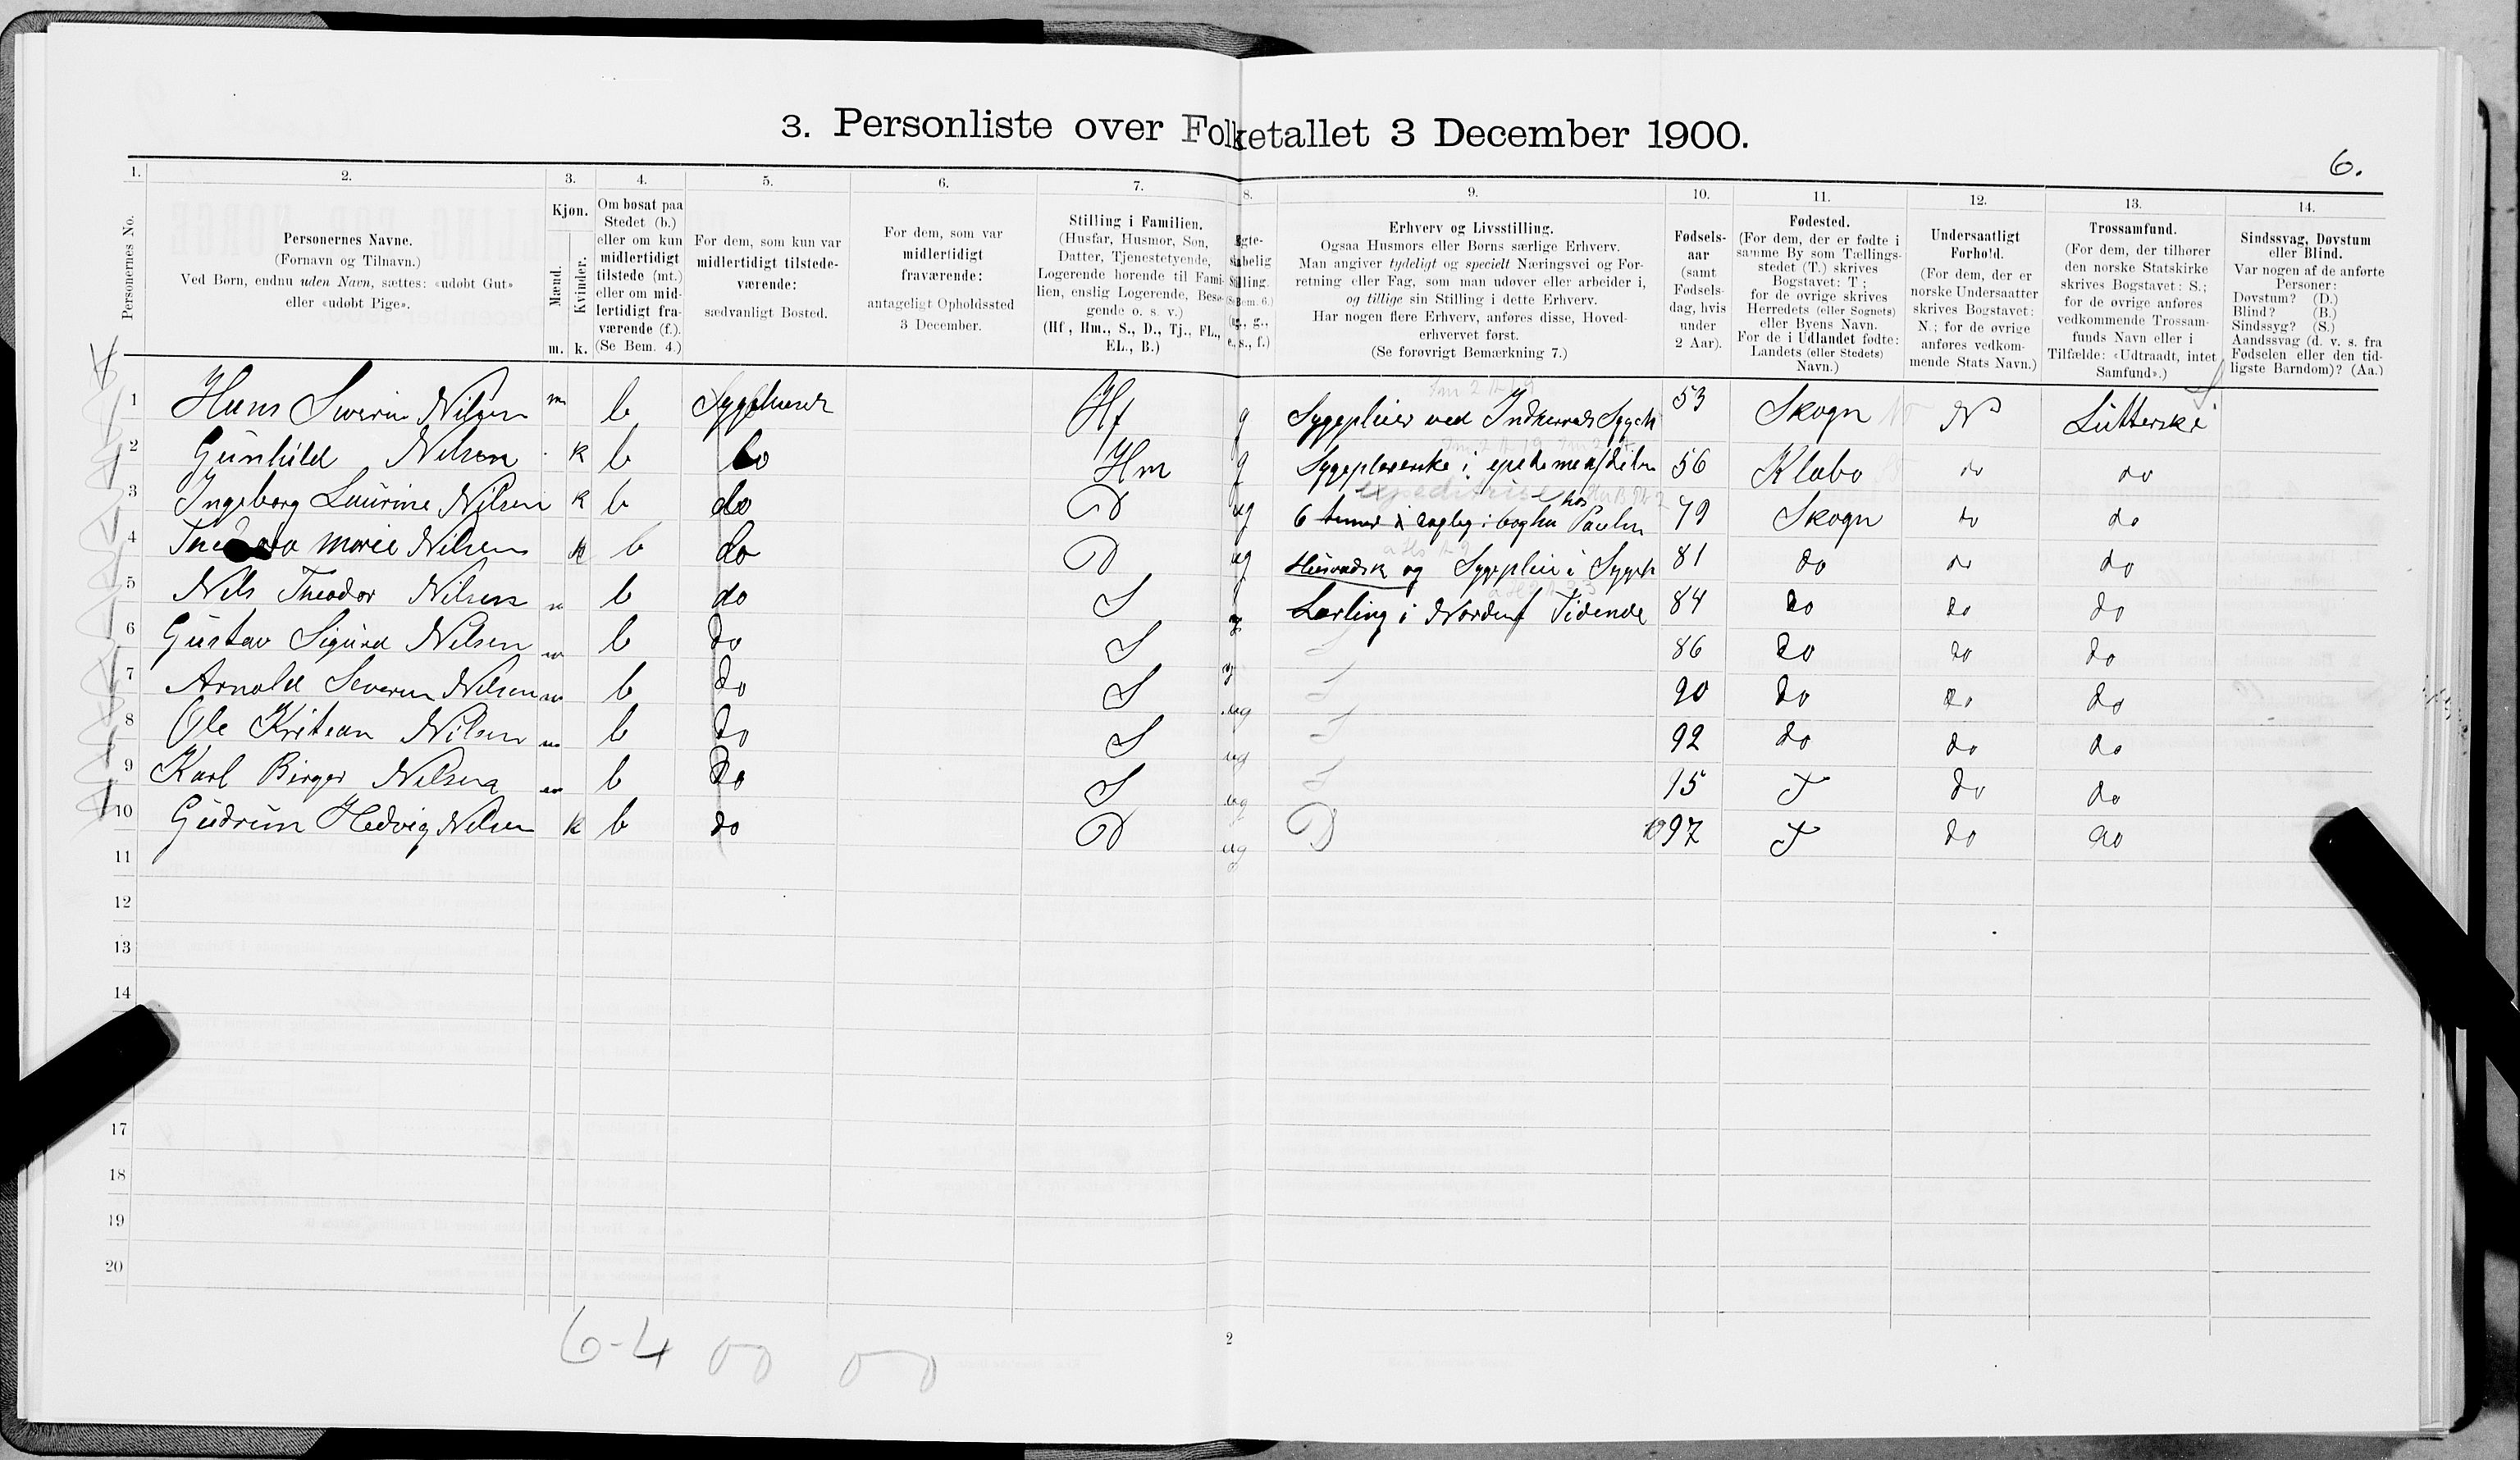 3. Personliste over Folketallet 3 December 1900.
6.
1. 2. 3. 4. 5. 6. 7. 8. 9. 10. 11. 12. 13. 14.
Personernes No.
Personernes Navne.
(Fornavn og Tilnavn.)
Ved Børn, endnu uden Navn, sættes: «udøbt Gut»
eller «udøbt Pige».
Kjøn.
Mænd.
Kvinder.
m. k.
Om bosat paa
Stedet (b.)
eller om kun
midlertidigt
tilstede (mt.)
eller om mid-
lertidigt fra-
værende (f.).
(Se Bem. 4.)
For dem, som kun var
midlertidigt tilstede-
værende:
sædvanligt Bosted.
For dem, som var
midlertidigt
fraværende:
antageligt Opholdssted
3 December.
Stilling i Familien.
(Husfar, Husmor, Søn,
Datter, Tjenestetyende,
Logerende hørende til Fami-
lien, enslig Logerende, Besø-
gende o. s. v.)
(Hf., Hm., S., D., Tj., FL.,
EL., B.)
Ægte-
skabelig
Stilling.
(Se Bem. 6.)
(ug., g.,
e., s., f.)
Erhverv og Livsstilling.
Ogsaa Husmors eller Børns særlige Erhverv.
Man angiver tydeligt og specielt Næringsvei og For-
retning eller Fag, som man udøver eller arbeider i,
og tillige sin Stilling i dette Erhverv.
Har nogen flere Erhverv, anføres disse, Hoved-
erhvervet først.
(Se forøvrigt Bemærkning 7.)
Fødsels-
aar
(samt
Fødsels-
dag, hvis
under
2 Aar).
Fødested.
(For dem, der er fødte i
samme By som Tællings-
stedet (T.) skrives
Bogstavet: T;
for de øvrige skrives
Herredets (eller Sognets)
eller Byens Navn.
For de i Udlandet fødte:
Landets (eller Stedets)
Navn.)
Undersaatligt
Forhold.
(For dem, der er
norske Undersaatter
skrives Bogstavet:
N.; for de øvrige
anføres vedkom-
mende Stats Navn.)
Trossamfund.
(For dem, der tilhører
den norske Statskirke
skrives Bogstavet: S.;
for de øvrige anføres
vedkommende Trossam-
funds Navn eller i
Tilfælde: «Udtraadt, intet
Samfund».)
Sindssvag, Døvstum
eller Blind.
Var nogen af de anførte
Personer:
Døvstum? (D.)
Blind? (B.)
Sindssyg? (S.)
Aandssvag (d. v. s. fra
Fødselen eller den tid-
ligste Barndom)? (Aa.)
1 Hans Severin Nilsen m b Sygehuset Hf g Sygepleier ved Indherreds Sygeh 53 Skogn N Lutterske
2 Gunhild Nilsen k b do Hm g Sygepleierske i 56 Klæbo do do
3 Ingeborg Laurine Nilsen k b do D ug 6 hos Paulin 79 Skogn do do
4 Marie Nilsen k b do D ug og Sygepleier i Sygeh 81 do do do
5 Nils Theodor Nilsen m b do S Lærling i Nordenf Tidende 84 do do do
6 Gustav Sigurd Nilsen m b do S 86 do do do
7 Arnold Severin Nilsen m b do S ug S 90 do do do
8 Ole Kristian Nilsen m b do S ug S 92 do do do
9 Karl Birger Nilsen m b do S ug S 95 T do do
10 Gudrun Hedvig Nilsen k b do D ug D 97 T do do
11
12
13
14
17
18
19
20
6-4 00 00
2